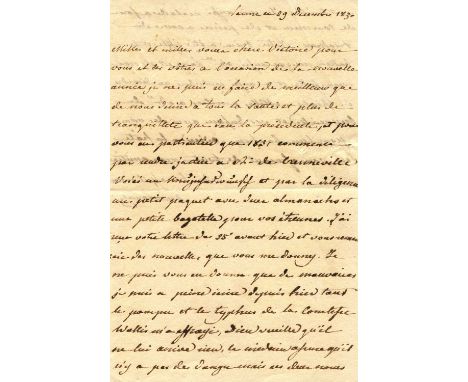 29 Decembre 1830
Milles et milles voeux chere Victoire pour
vous et les vôtres a l'occasion de la nouvelle
année je ne puis en faire de meilleurs que
de nous désirer a tous la santé et plus de
tranquillité que dans la précédente, et pour
vous en particulier que 1831 commence
par
Voici un et par la diligence
un petit paquet avec deux almanachs et
une petite bagatelle pour vos étrennes. J'ai
reçu votre lettre du 25 avant hier et vous remer
cie des nouvelles que vous me donnez. Je
ne puis vous en donner que de mauvaises
je puis a peine écrire depuis hier tant
le pourpre et le typhus de la Comtesse
Wallis m'a effrayé, dieu veuille qu'il
ne lui arrive rien, le médecin assure qu'il
n'y a pas de danger mais ces deux noms